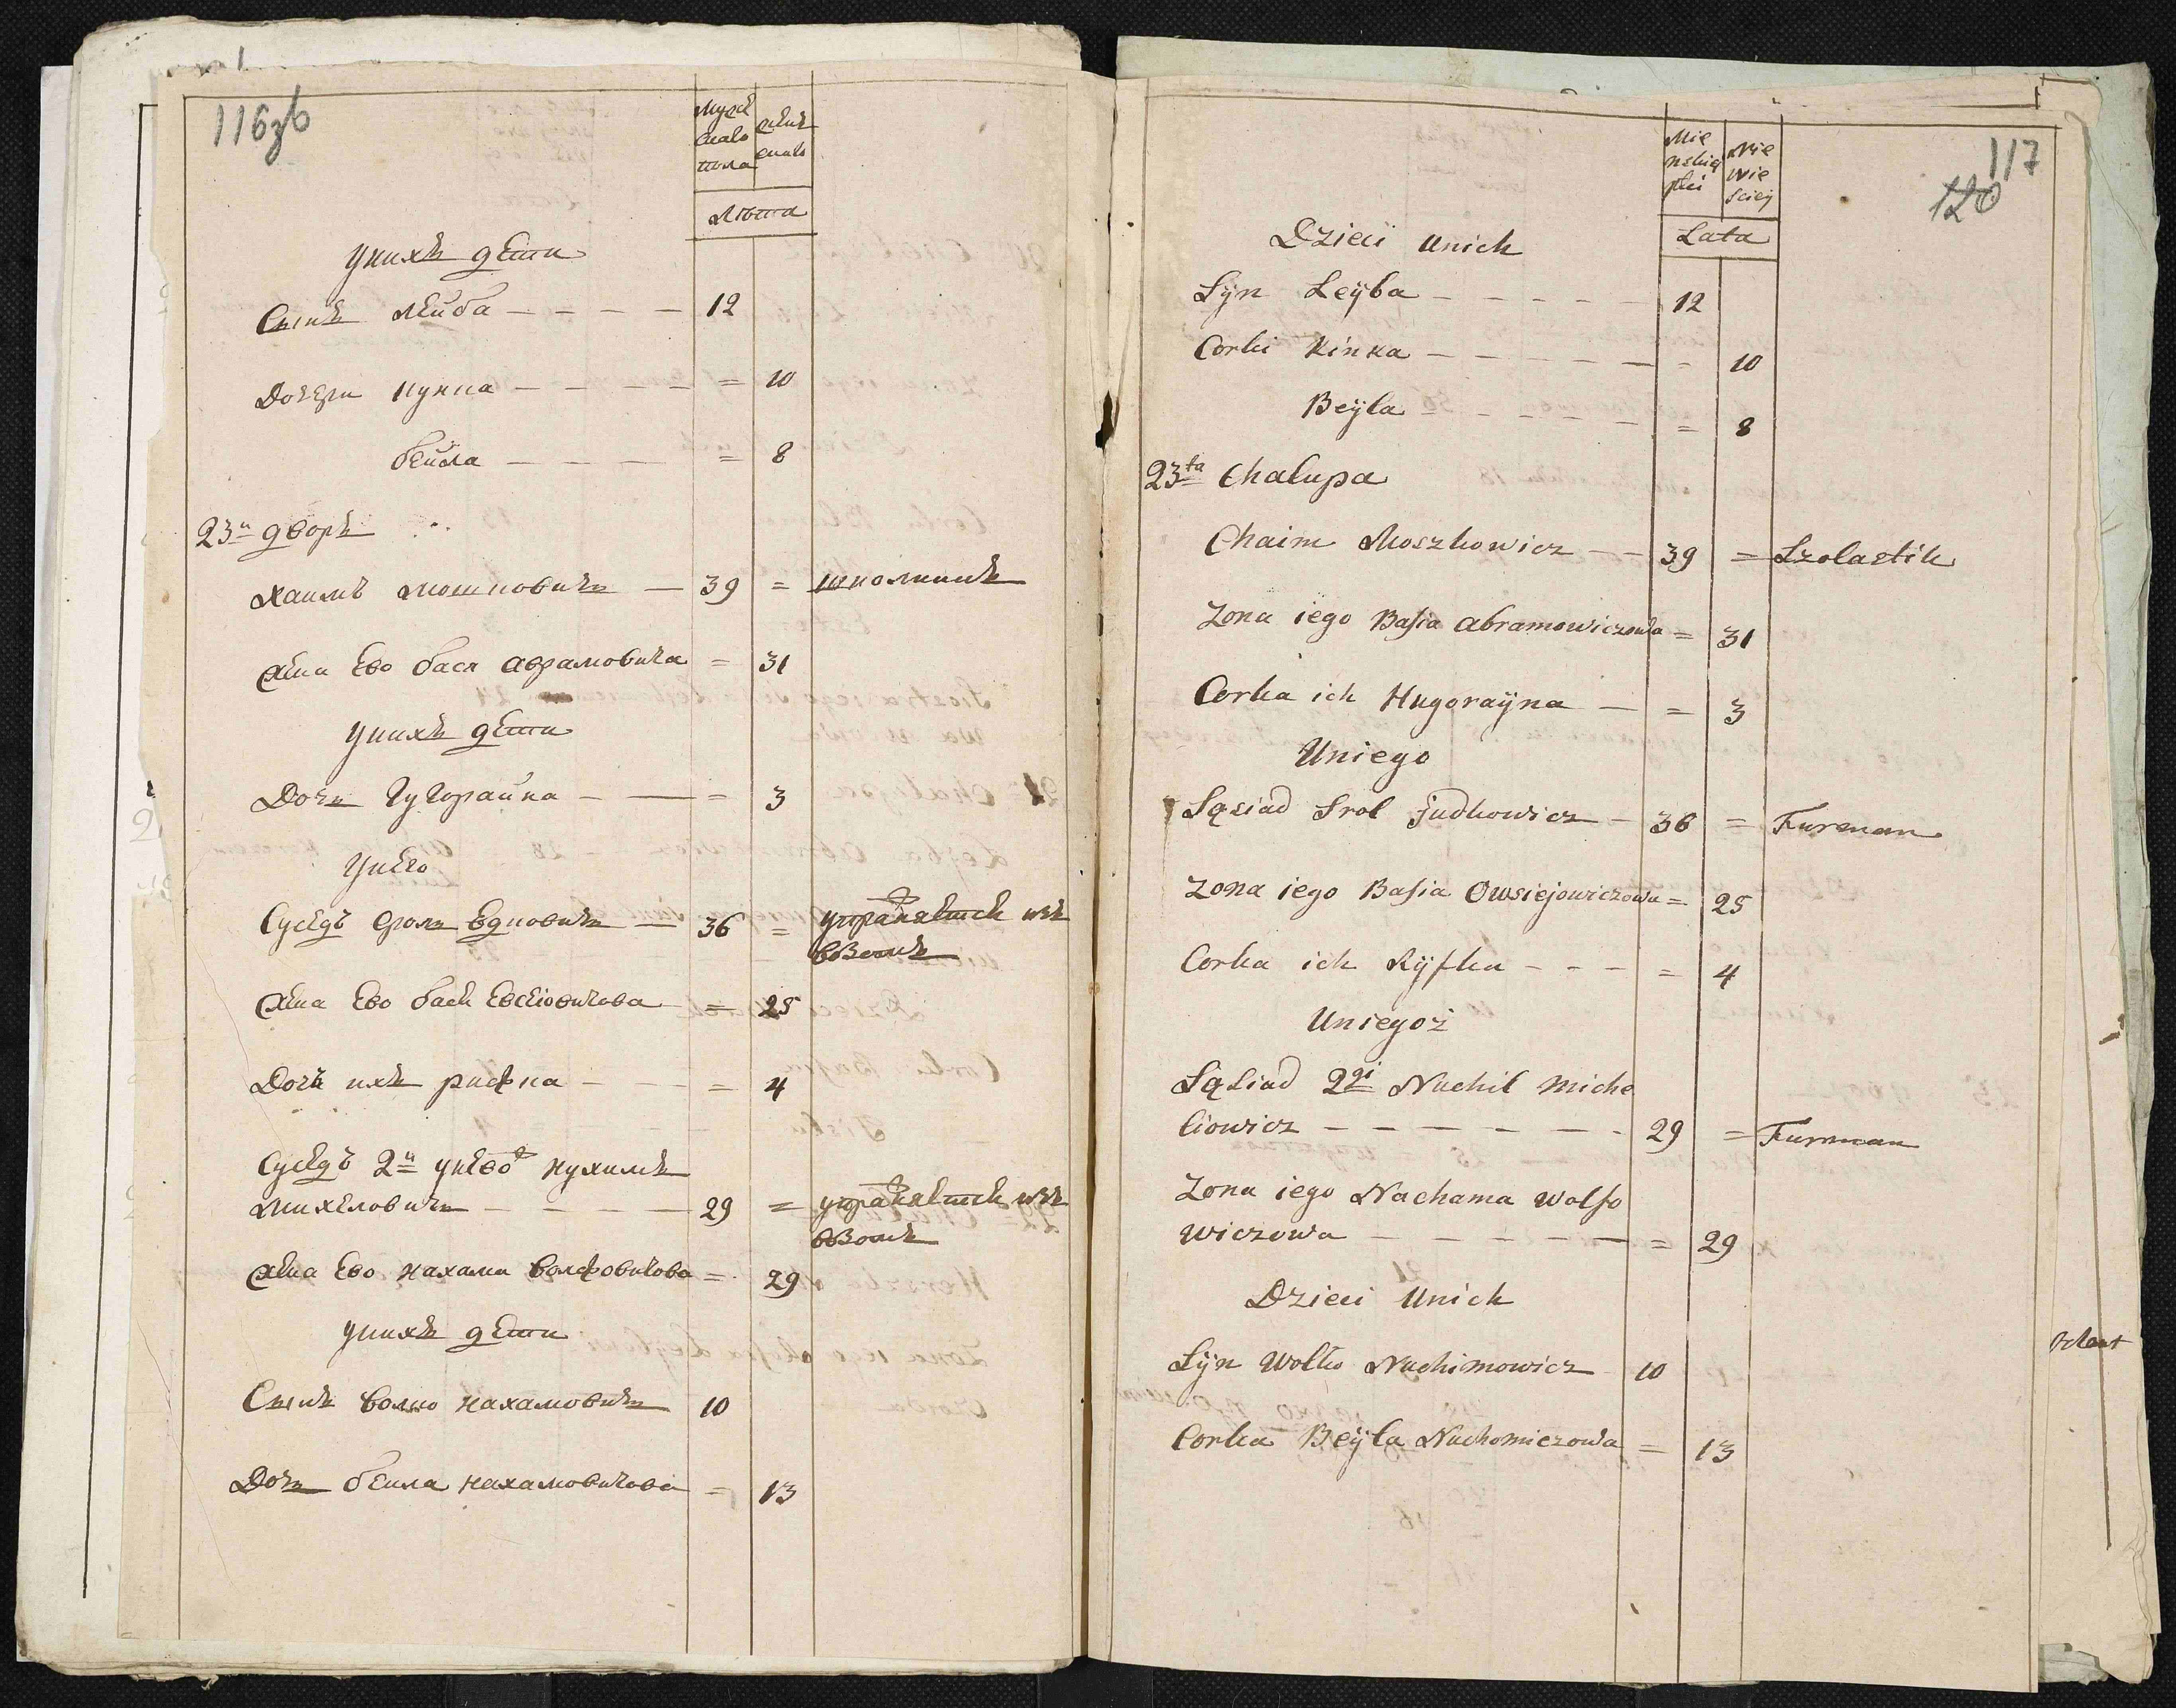 116зб
Мужс
каго
пола
женс
каго
Лѣта
у нихъ дети
Сынъ Лейба - - - - 12
Дочери Кунка - - - - = 10
бейла - - - = 8
23й дворъ
Хаимъ Мошковичъ - 39 = школникъ
жена Ево бася Аврамовича = 31
у нихъ дети
Дочь Гугорайна - - = 3
У него
Суседъ Сроль Едковичъ - 36 = упражняется изъ
возомъ
жена Ево бася Евсеiовичова = 25
Дочь ихъ рифка - - = 4
Суседъ 2й у нево ж нухимъ
Михеловичъ - - - - 29 = упражняется изъ
возомъ
жена Ево нахама волфовичова = 29
у нихъ дети
Сынъ волко нахамовичъ 10
Дочь бейла нахамовичова = 13
117
120
Mie
nskiej
płci
Nie
wie
sciej
Lata
Dzieci unich
Syn Leyba - - - - - 12
Corki Kinka - - - - - = 10
Beyla - - - - - = 8
23ta Chalupa
Chaim Moszkowicz - - 39 = Szolastik
Zona iego Basia Abramowiczowa = 31
Corka ich Hugorayna - = 3
Uniego
Sąsiad Srol Judkowicz - 36 = Furman
Zona iego Basia Owsiejowiczowa = 25
Corka ich Ryfka - - - = 4
Uniegoż
Sąsiad 2gi Nuchil Miche
liowicz - - - - - - 29 = Furman
Zona iego Nachama Wolfo
wiczowa - - - - - = 29
Dzieci Unich
Syn Wolko Nuchimowicz 10
Corka Beyla Nuchomiczowa = 13